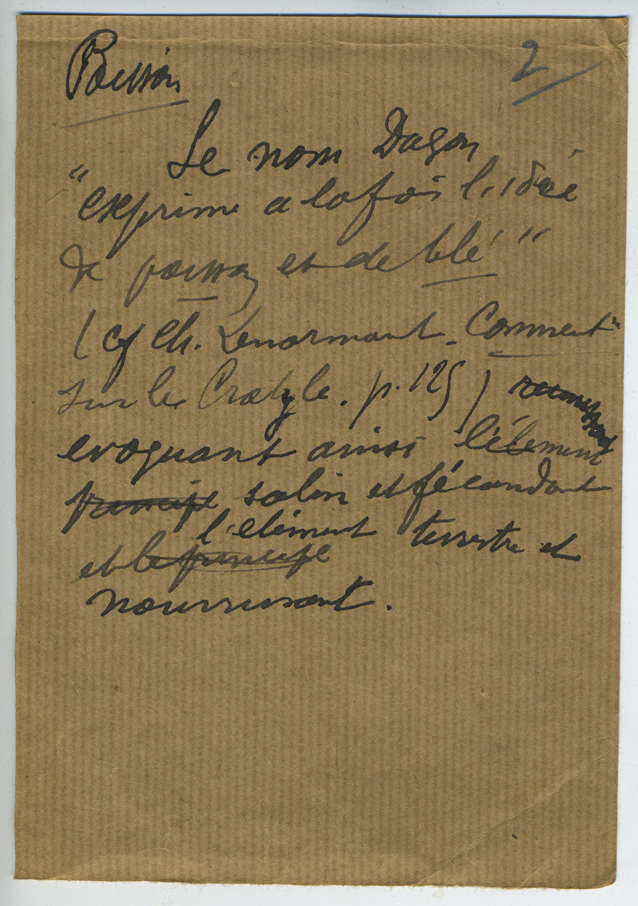 Poisson 2
Le nom Dagon
"exprime a la fois l'idée
de poisson et de blé"
(cf Ch. Lenormant. Comment^re
sur le Cratyle. p. 125)
evoquant ainsi l'élément
principe salin et fécondant
l'elément terrestre et
et le principe
nourrissant.